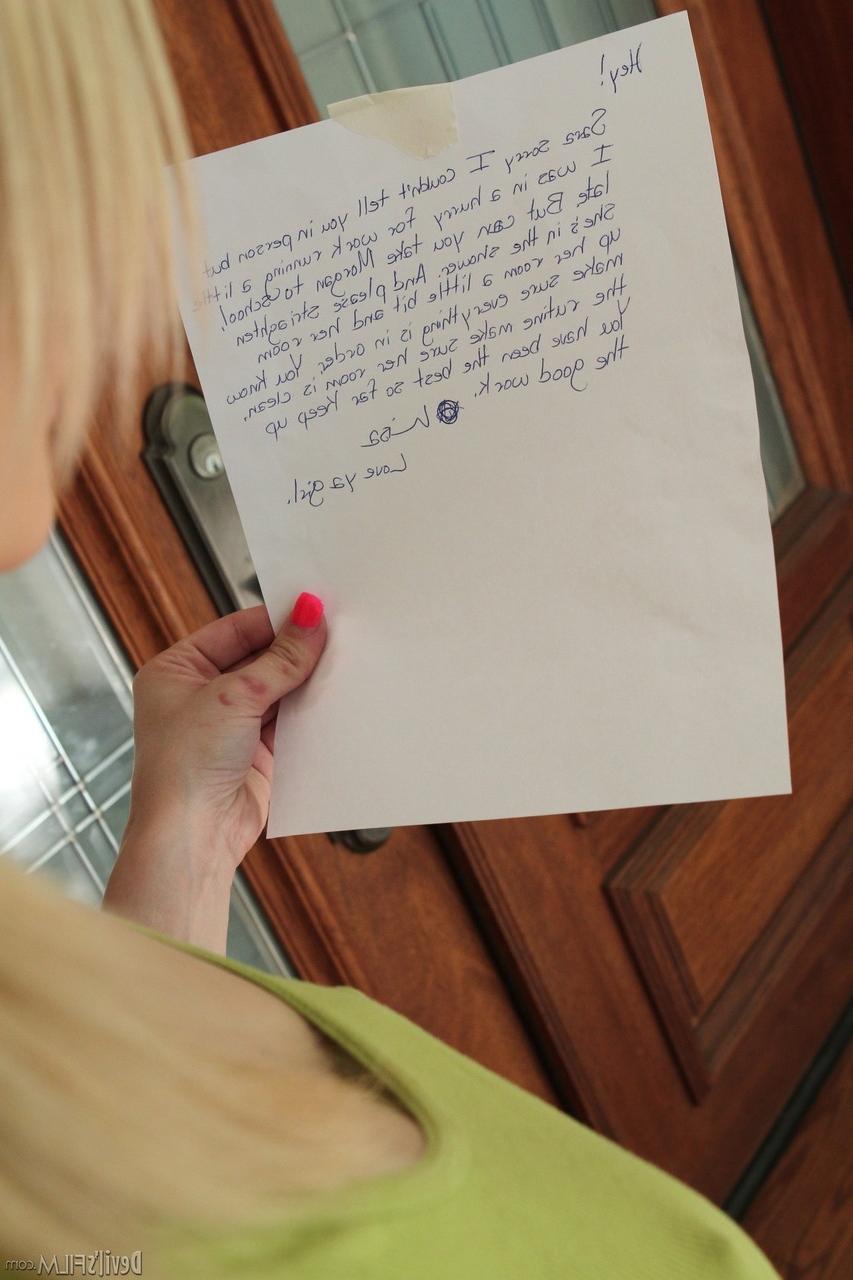 Hey!
Sara sorry I couldn't tell you in person but
I was in a hurry for work running a little
late. But can you take Morgan to school!
She's in the shower. And please striaghten
up her room a little bit and her room
make sure everything is in order, You know
the rutine make sure her room is clean.
You have been the best so far keep up
the good work.
Love ya girl.
Devil'sFILM.com